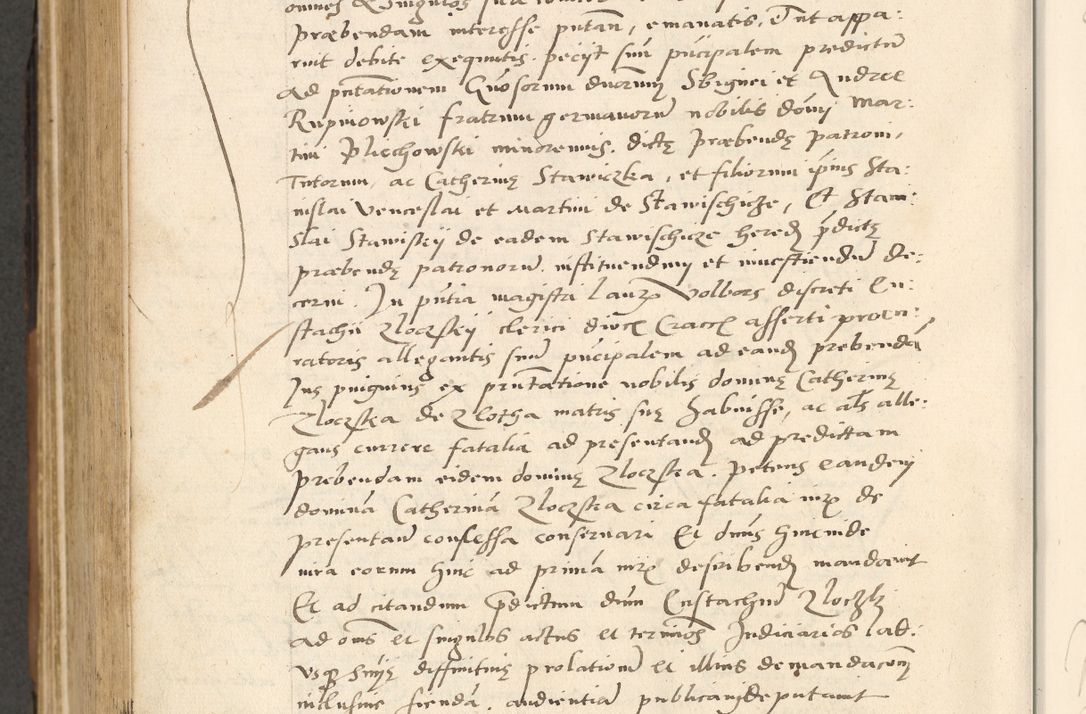 omnes et singulos sua
præbendam interesse putan̄, emanatis, Et appa:
ruit debite exequutis. pecijt suū pūcipalem predictū
ad pn̄tationem Gn̄osorum duorum Sbignei et Andree
Rupniowski fratrum germanorū nobilis dōni Mar:
tini Pliechowski minorennis. dictę Præbendę patroni,
Tutorum, ac Catherinę Stawiczka, et filiorum ip̄ius Sta:
nislai Venceslai et Martini de Stawischicze, Et Stani:
slai Stawiskij de eadem Stawischicze hered p̄dictę
præbendę patronorū. instituendum et inuestiendū de:
cerni. In pn̄tia magistri Laur Volbors discreti Eu:
stachii Zloczskij clerici dioc Cracoꝰ asserti procu:
ratoris allegantis suū pn̄cipalem ad eand prebendā
Jus pinguius ex pn̄tatione nobilis dominę Catherinę
Zloczska de Zlotha matris suę habuisse, ac als alle:
gans currere fatalia ad presentand ad predictam
prebendam eidem dominę Zloczska. petens eandem
dominā Catherinā Zloczska circa fatalia iur de
presentan̄ consessa conseruari Et dn̄us hincinde
iura eorum hinc ad primā iur describend mandauit
Et ad citandum p̄dictum dn̄m Eustachiū Zloczk
ad om̄s et singulos actus et terminos Judiciarios lad:
usqꝫ snīę diffinitiuę prolationē et illius demandacoēm
inclusiue fiendā. audientiā publicam deputauit